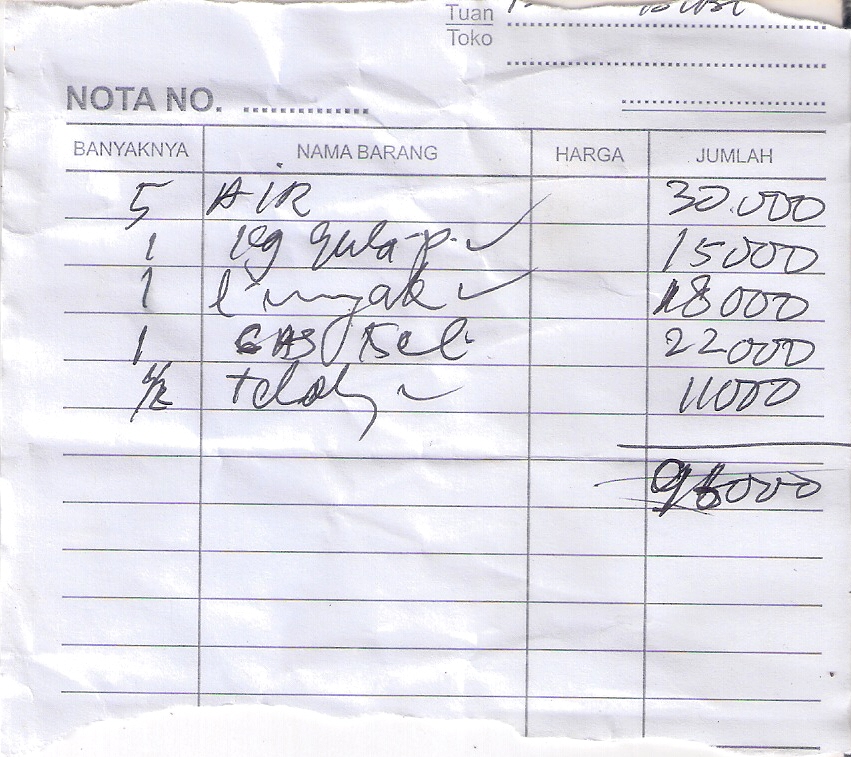 Tuan
Toko
NOTA NO.
BANYAKNYA NAMA BARANG HARGA JUMLAH
5 AIR 30.000
1 kg gula-p. 15000
1 l minyak 18000
1 GAS kecl. 22000
1/2 11000
96000